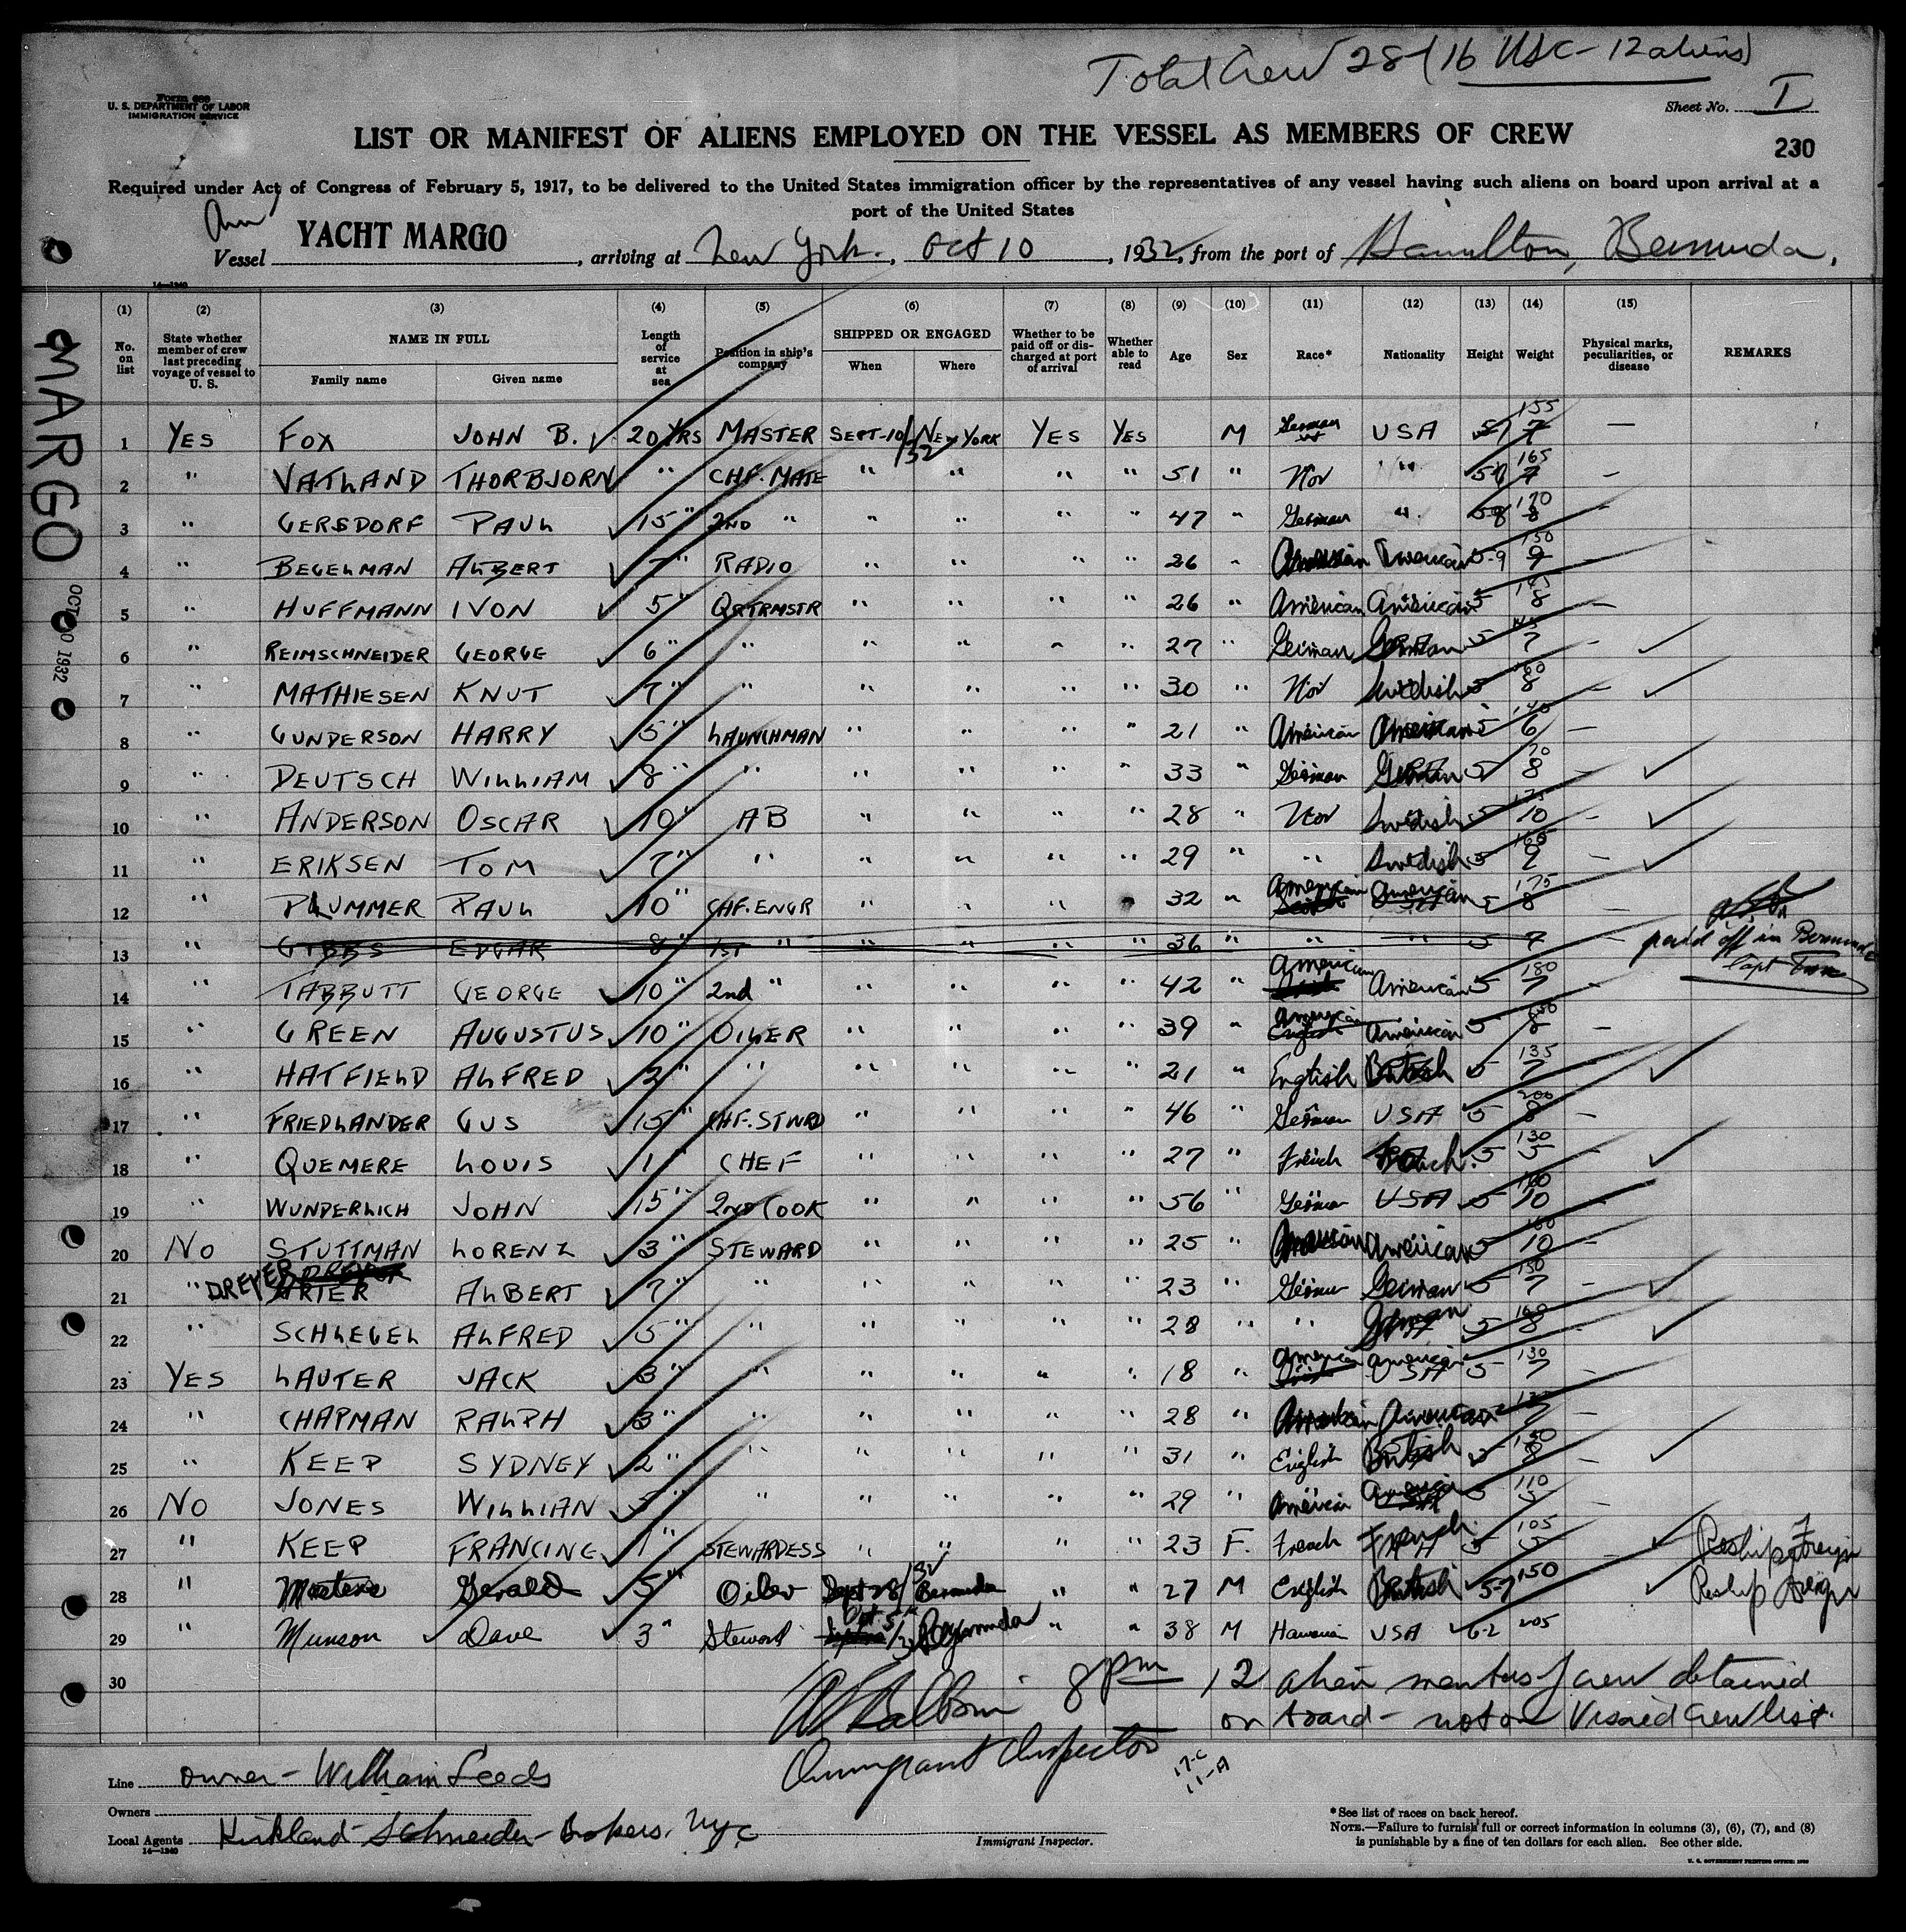 Total Crew 28 (16 USC - 12 aliens)
Form 689
U. S. DEPARTMENT OF LABOR
IMMIGRATION SERVICE
Sheet No. I
LIST OR MANIFEST OF ALIENS EMPLOYED ON THE VESSEL AS MEMBERS OF CREW
230
Required under Act of Congress of February 5, 1917, to be delivered to the United States immigration officer by the representatives of any vessel having such aliens on board upon arrival at a
port of the United States
Am
Vessel YACHT MARGO, arriving at New York, Oct 10, 1932, from the port of Hamilton, Bermuda.
14-1240
(1) (2) (3) (4) (5) (6) (7) (8) (9) (10) (11) (12) (13) (14) (15)
No. on list State whether member of crew last preceding voyage of vessel to U. S. NAME IN FULL Family name Given name Length of service at sea Position in ship's company SHIPPED OR ENGAGED When Where Whether to be paid off or discharged at port of arrival Whether able to read Age Sex Race* Nationality Height Weight Physical marks, peculiarities, or disease REMARKS
MARGO
OCT 10 1932
1 YES FOX JOHN B. 20 YRS MASTER SEPT-10/32 NEW YORK YES YES M German USA 5 7 155 —
2 " VATLAND THORBJORN " CHF. MATE " " " " 51 " Nor " 5 7 165 —
3 " GERSDORF PAUL 15 " 2ND " " " " " 47 " German " 5 8 170 —
4 " BEGELMAN ALBERT 7 " RADIO " " " " 26 " American American 5-9 9 150 —
5 " HUFFMANN IVON 5 " QRTRMSTR " " " " 26 " American American 5 8 145 —
6 " REIMSCHNEIDER GEORGE 6 " " " " " " 27 " German German 5 7 —
7 " MATHIESEN KNUT 7 " " " " " " 30 " Nor Swedish 5 8 160 —
8 " GUNDERSON HARRY 5 " LAUNCHMAN " " " " 21 " American American 5 6 140 —
9 " DEUTSCH WILLIAM 8 " " " " " " 33 " German German 5 8 —
10 " ANDERSON OSCAR 10 " AB " " " " 28 " Nor Swedish 5 10 175 —
11 " ERIKSEN TOM 7 " " " " " " 29 " " Swedish 5 9 —
12 " PLUMMER PAUL 10 " CHF. ENGR " " " " 32 " American American 5 8 175 —
13 " GIBBS EDGAR 8 " 1ST " " " " " 36 " " " 5 7 — paid off in Bermuda
14 " TABBUTT GEORGE 10 " 2nd " " " " " 42 " American American 5 7 180 —
15 " GREEN AUGUSTUS 10 " OILER " " " " 39 " American English American 5 8 —
16 " HATFIELD ALFRED 2 " " " " " " 21 " English British 5 7 135
17 " FRIEDLANDER GUS 15 " CHF. STWRD " " " " 46 " German USA 5 8 200 —
18 " QUEMERE LOUIS 1 " CHEF " " " " 27 " French French 5 5 130 —
19 " WUNDERLICH JOHN 15 " 2ND COOK " " " " 56 " German USA 5 10 —
20 NO STUTTMAN LORENZ 3 " STEWARD " " " " 25 " American American 5 10 160 —
21 " DREYER ARTER ALBERT 7 " " " " " " 23 " German German 5 7 150 —
22 " SCHLEGEL ALFRED 5 " " " " " " 28 " " German 5 8 —
23 YES LAUTER JACK 3 " " " " " " 18 " American American USA 5 7 130 —
24 " CHAPMAN RALPH 3 " " " " " " 28 " American American —
25 " KEEP SYDNEY 2 " " " " " " 31 " English British 5 8 150 —
26 NO JONES WILLIAN 5 " " " " " " 29 " American American 5 5 110 —
27 " KEEP FRANCINE 1 " STEWARDESS " " " " 23 F. French French 5 5 105 — Reship Foreign
28 " Gerald 5 " Oiler Sept 28/32 Bermuda " " 27 M English British 5-7 150 Reship Foreign
29 " Munson Dave 3 " Steward Oct 5/32 Bermuda " " 38 M Hawaiian USA 6-2 205
30
8 pm 12 alien members of crew detained
on board - not on Visaed Crew list.
Immigrant Inspector
17-C
11-A
Line Owner - William Leeds
Owners
Local Agents Kirkland-Schneider-Brokers, Nyc
14-1240
Immigrant Inspector.
*See list of races on back hereof.
NOTE.—Failure to furnish full or correct information in columns (3), (6), (7), and (8)
is punishable by a fine of ten dollars for each alien. See other side.
U. S. GOVERNMENT PRINTING OFFICE: 1930